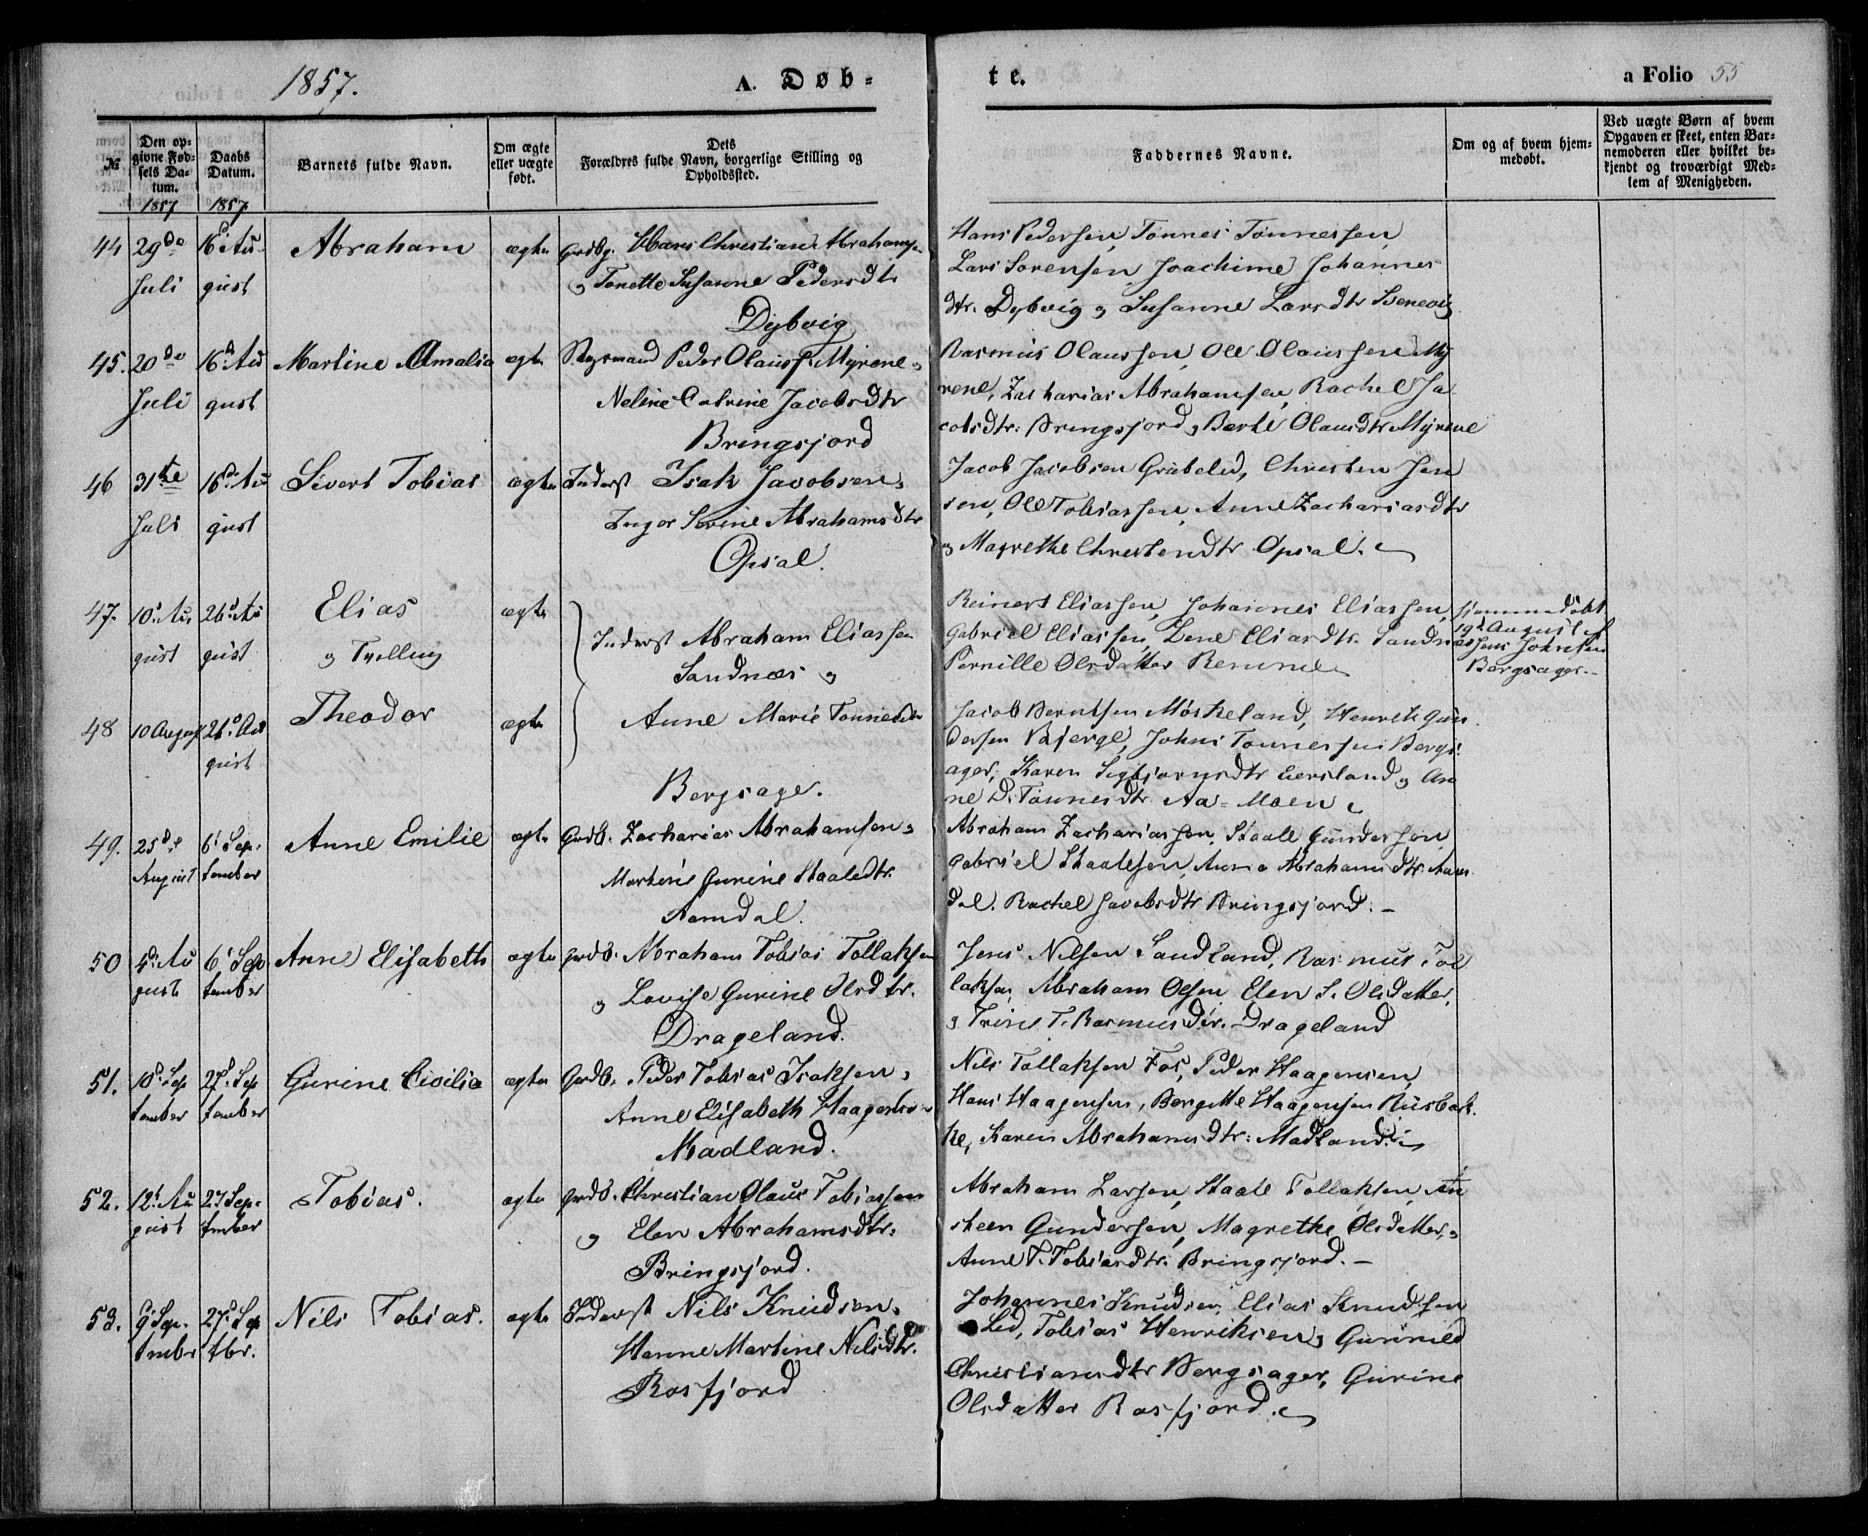 1857.
A. Døb-
te.
a Folio 55
№
Den op-
givne Fød-
sels Da-
tum.
1857
Daabs
Datum.
1857
Barnets fulde Navn.
Om ægte
eller uægte
født.
Dets
Forældres fulde Navn, borgerlige Stilling og
Opholdssted.
Faddernes Navne.
Om og af hvem hjem-
medøbt.
Ved uægte Børn af hvem
Opgaven er skeet, enten Bar-
nemoderen eller hvilket be-
kjendt og troværdigt Med-
lem af Menigheden.
44 29de Juli
16d August
Abraham
ægte
Grdbg. Hans Christian Abrahamsen
og Tonette Susanne Pedersdtr
Dybvig
Hans Pedersen, Tønnes Tønnessen,
Lars Sørensen, Joachime Johannes
dtr. Dybvig og Susanne Larsdtr Svenevig
45. 20de Juli
16d August
Martine Amalia
ægte
Styrmand Peder Olaus Myrene og
Neline Catrine Jacobsdtr
Bringsjord
Rasmus Olaussen, Ole Olaussen My
rene, Zacharias Abrahamsen, Rachel Ja
cobsdtr: Bringsjord og Berte Olausdtr Myrene
46 31te Juli
16d August
Sivert Tobias
ægte
Inderst Isak Jacobsen og
Inger Serine Abrahamsdtr
Opsal.
Jacob Jacobsen Grübeled, Christen Jen
sen, Ole Tobiassen, Anne Zachariasdtr
og Magrethe Christendtr Opsal.
47. 10d August
26d August
Elias
og Tvilling
ægte
Inderst Abraham Eliassen
Sandnæs og
Reinert Eliassen, Johannes Eliassen,
Gabriel Eliassen, Lene Eliasdtr. Sandnæs
Pernille Olsdatter Remme
hjemmedøbt
19d August af
Jens Johnsen
Bergsager.
48 10 August
26d August
Theodor
ægte
Anne Marie Tønnesdtr
Bergsager.
Jacob Berntsen Møskeland, Henrik Gun
dersen Bjerge, Johns Tønnessen Bergs
ager, Karen Sigbjørnsdtr Eersland og An
ne D. Tønnesdtr Aa-Moen
49. 25de August
6d September
Anne Emilie
ægte
Grdb. Zacharias Abrahamsen og
Martine Gurine Staaledtr.
Aamdal.
Abraham Zachariassen, Staale Gundersen,
Gabriel Staalesen, Anna Abrahamsdtr. Aam
dal. Rachel Jacobsdtr Bringsjord.
50 4d August
6d September
Anne Elisabeth
ægte
Grdb. Abraham Tobias Tollaksen
og Lovise Gurine Olsdtr.
Drageland.
Jens Nilsen Sandland, Rasmus Tol
laksen, Abraham Olsen, Elen S. Olsdatter,
og Trine T. Rasmusdtr. Drageland
51. 10d September
27d September
Gurine Cicilia
ægte
Grdb. Peder Tobias Isaksen og
Anne Elisabeth Haagensen
Madland.
Nils Tollaksen Fos, Peder Haagensen,
Hans Haagensen, Bergitte Haagensen Riisbak
ke, Karen Abrahamsdtr: Madland
52. 12d August
27 September
Tobias.
ægte
Grdb. Christian Olaus Tobiassen
og Elen Abrahamsdtr.
Bringsjord.
Abraham Larsen, Staale Tollaksen,
Gundersen, Magrethe Olsdatter og
Anne T. Tobiasdtr. Bringsjord.
53. 9d September
27d Septbr.
Nils Tobias.
ægte
Inderst Nils Knudsen og
Hanne Martine Nilsdtr.
Rosfjord
Johannes Knudsen, Elias Knudsen
Lid, Tobias Henriksen og Gurine
Christiansdtr Bergsager, Gurine
Olsdatter Rosfjord.